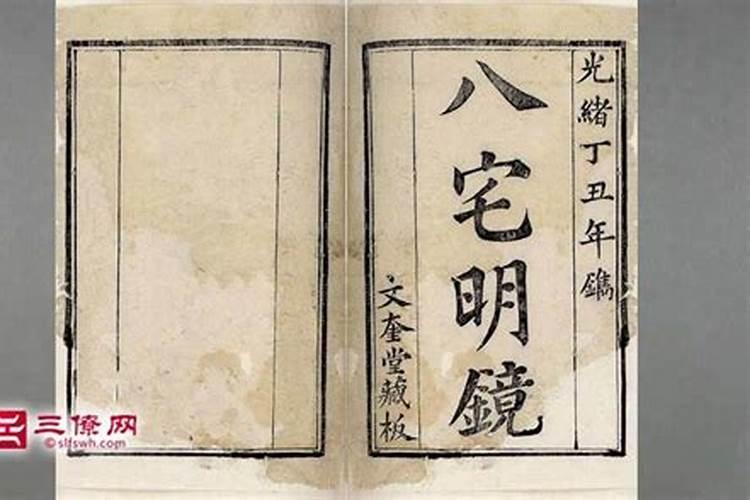 光緒丁丑年鐫
八宅明鏡
文奎堂藏板
三僚网
slfswh.com